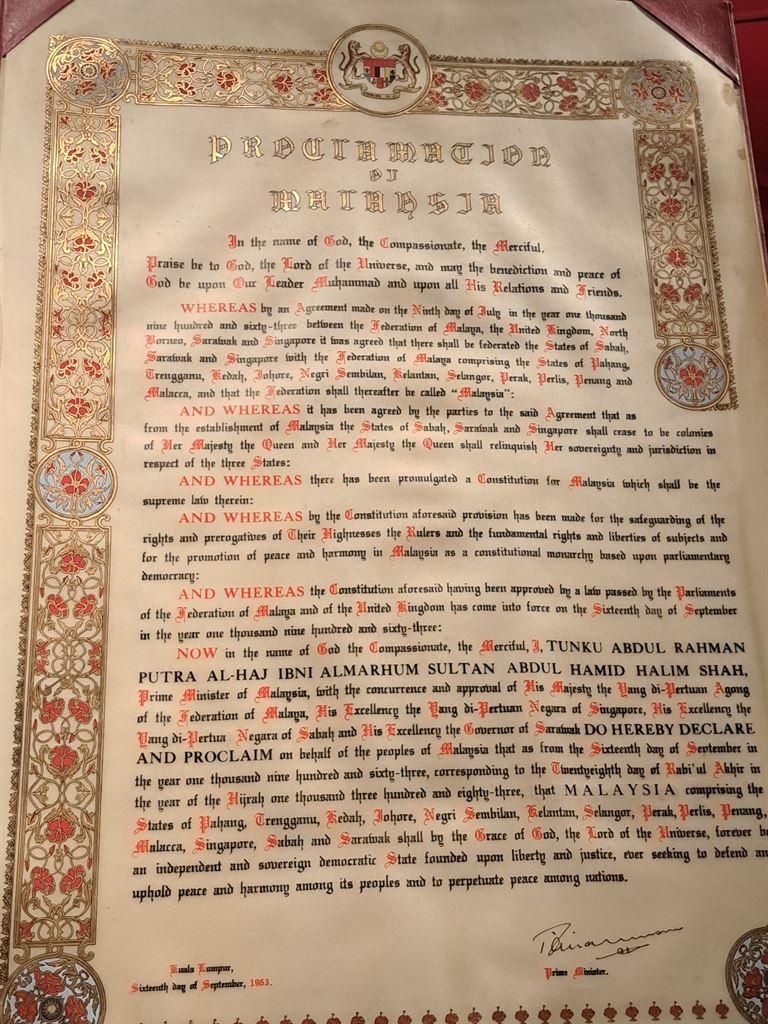 PROCLAMATION
OF
MALAYSIA
In the name of God, the Compassionate, the Merciful.
Praise be to God, the Lord of the Universe, and may the benediction and peace of
God be upon Our Leader Muhammad and upon all His Relations and Friends.
WHEREAS by an Agreement made on the Ninth day of July in the year one thousand
nine hundred and sixty-three between the Federation of Malaya, the United Kingdom, North
Borneo, Sarawak and Singapore it was agreed that there shall be federated the States of Sabah,
Sarawak and Singapore with the Federation of Malaya comprising the States of Pahang,
Trengganu, Kedah, Johore, Negri Sembilan, Kelantan, Selangor, Perak, Perlis, Penang and
Malacca, and that the Federation shall thereafter be called "Malaysia":
AND WHEREAS it has been agreed by the parties to the said Agreement that as
from the establishment of Malaysia the States of Sabah, Sarawak and Singapore shall cease to be colonies
of Her Majesty the Queen and Her Majesty the Queen shall relinquish Her sovereignty and jurisdiction in
respect of the three States:
AND WHEREAS there has been promulgated a Constitution for Malaysia which shall be the
supreme law therein:
AND WHEREAS by the Constitution aforesaid provision has been made for the safeguarding of the
rights and prerogatives of Their Highnesses the Rulers and the fundamental rights and liberties of subjects and
for the promotion of peace and harmony in Malaysia as a constitutional monarchy based upon parliamentary
democracy:
AND WHEREAS the Constitution aforesaid having been approved by a law passed by the Parliaments
of the Federation of Malaya and of the United Kingdom has come into force on the Sixteenth day of September
in the year one thousand nine hundred and sixty-three:
NOW in the name of God the Compassionate, the Merciful, I, TUNKU ABDUL RAHMAN
PUTRA AL-HAJ IBNI ALMARHUM SULTAN ABDUL HAMID HALIM SHAH,
Prime Minister of Malaysia, with the concurrence and approval of His Majesty the Yang di-Pertuan Agong
of the Federation of Malaya, His Excellency the Yang di-Pertuan Negara of Singapore, His Excellency the
Yang di-Pertua Negara of Sabah and His Excellency the Governor of Sarawak DO HEREBY DECLARE
AND PROCLAIM on behalf of the peoples of Malaysia that as from the Sixteenth day of September in
the year one thousand nine hundred and sixty-three, corresponding to the Twentyeighth day of Rabi'ul Akhir in
the year of the Hijrah one thousand three hundred and eighty-three, that MALAYSIA comprising the
States of Pahang, Trengganu, Kedah, Johore, Negri Sembilan, Kelantan, Selangor, Perak, Perlis, Penang,
Malacca, Singapore, Sabah and Sarawak shall by the Grace of God, the Lord of the Universe, forever be
an independent and sovereign democratic State founded upon liberty and justice, ever seeking to defend an
uphold peace and harmony among its peoples and to perpetuate peace among nations.
Kuala Lumpur,
Sixteenth day of September, 1963.
Prime Minister.